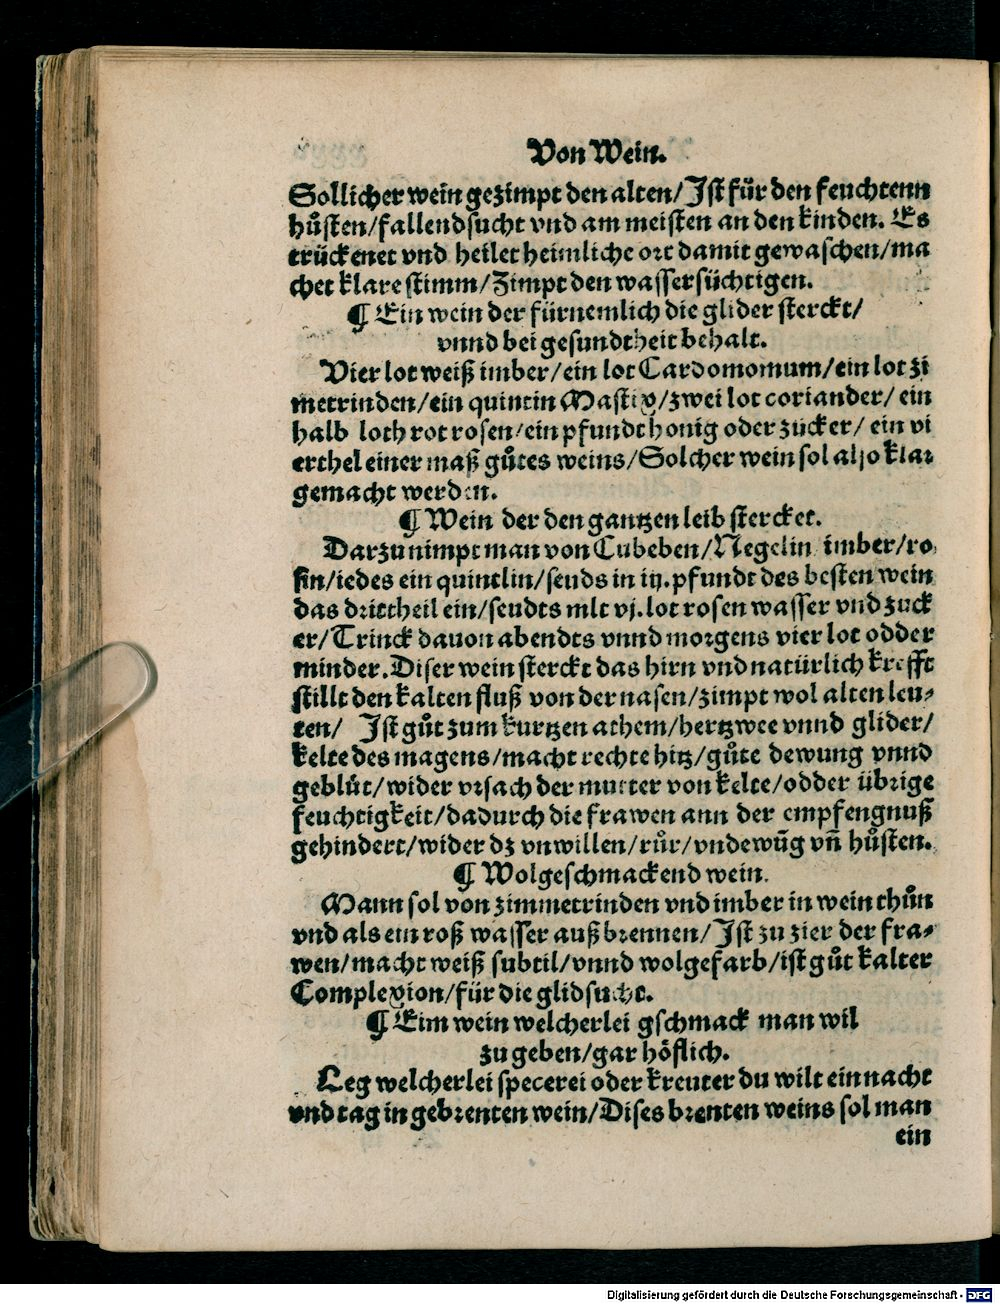 Von Wein.
Sollicher wein gezimpt den alten/Ist für den feuchtenn
hůsten/fallendsucht vnd am meisten an den kinden. Es
trückenet vnd heilet heimliche ort damit gewaschen/ma
chet klare stimm/Zimpt den wassersüchtigen.
¶ Ein wein der fürnemlich die glider sterckt/
vnnd bei gesundtheit behalt.
Vier lot weiß imber/ein lot Cardomomum/ein lot zi
metrinden/ein quintin Mastix/zwei lot coriander/ ein
halb loth rot rosen/ein pfundt honig oder zucker/ ein vi
erthel einer maß gůtes weins/Solcher wein sol also klar
gemacht werden.
¶ Wein der den gantzen leib stercket.
Darzu nimpt man von Cubeben/Negelin imber/ro
sin/iedes ein quintlin/seuds in iij. pfundt des besten wein
das drittheil ein/seudts mit vj. lot rosen wasser vnd zuck
er/Trinck dauon abendts vnnd morgens vier lot odder
minder. Diser wein sterckt das hirn vnd natürlich krefft
stillt den kalten fluß von der nasen/zimpt wol alten leu⸗
ten/ Ist gůt zum kurtzen athem/hertzwee vnnd glider/
kelte des magens/macht rechte hitz/gůte dewung vnnd
geblůt/wider vrsach der mutter von kelte/odder übrige
feuchtigkeit/dadurch die frawen ann der empfengnuß
gehindert/wider dz vnwillen/růr/vndewūg vn̄ hůsten.
¶ Wolgeschmackend wein.
Mann sol von zimmetrinden vnd imber in wein thůn
vnd als ein roß wasser auß brennen/Ist zu zier der fra⸗
wen/macht weiß subtil/vnnd wolgefarb/ist gůt kalter
Complexion/für die glidsucht.
¶ Eim wein welcherlei gschmack man wil
zu geben/gar höflich.
Leg welcherlei specerei oder kreuter du wilt ein nacht
vnd tag in gebrenten wein/Dises brenten weins sol man
ein
Digitalisierung gefördert durch die Deutsche Forschungsgemeinschaft - DFG